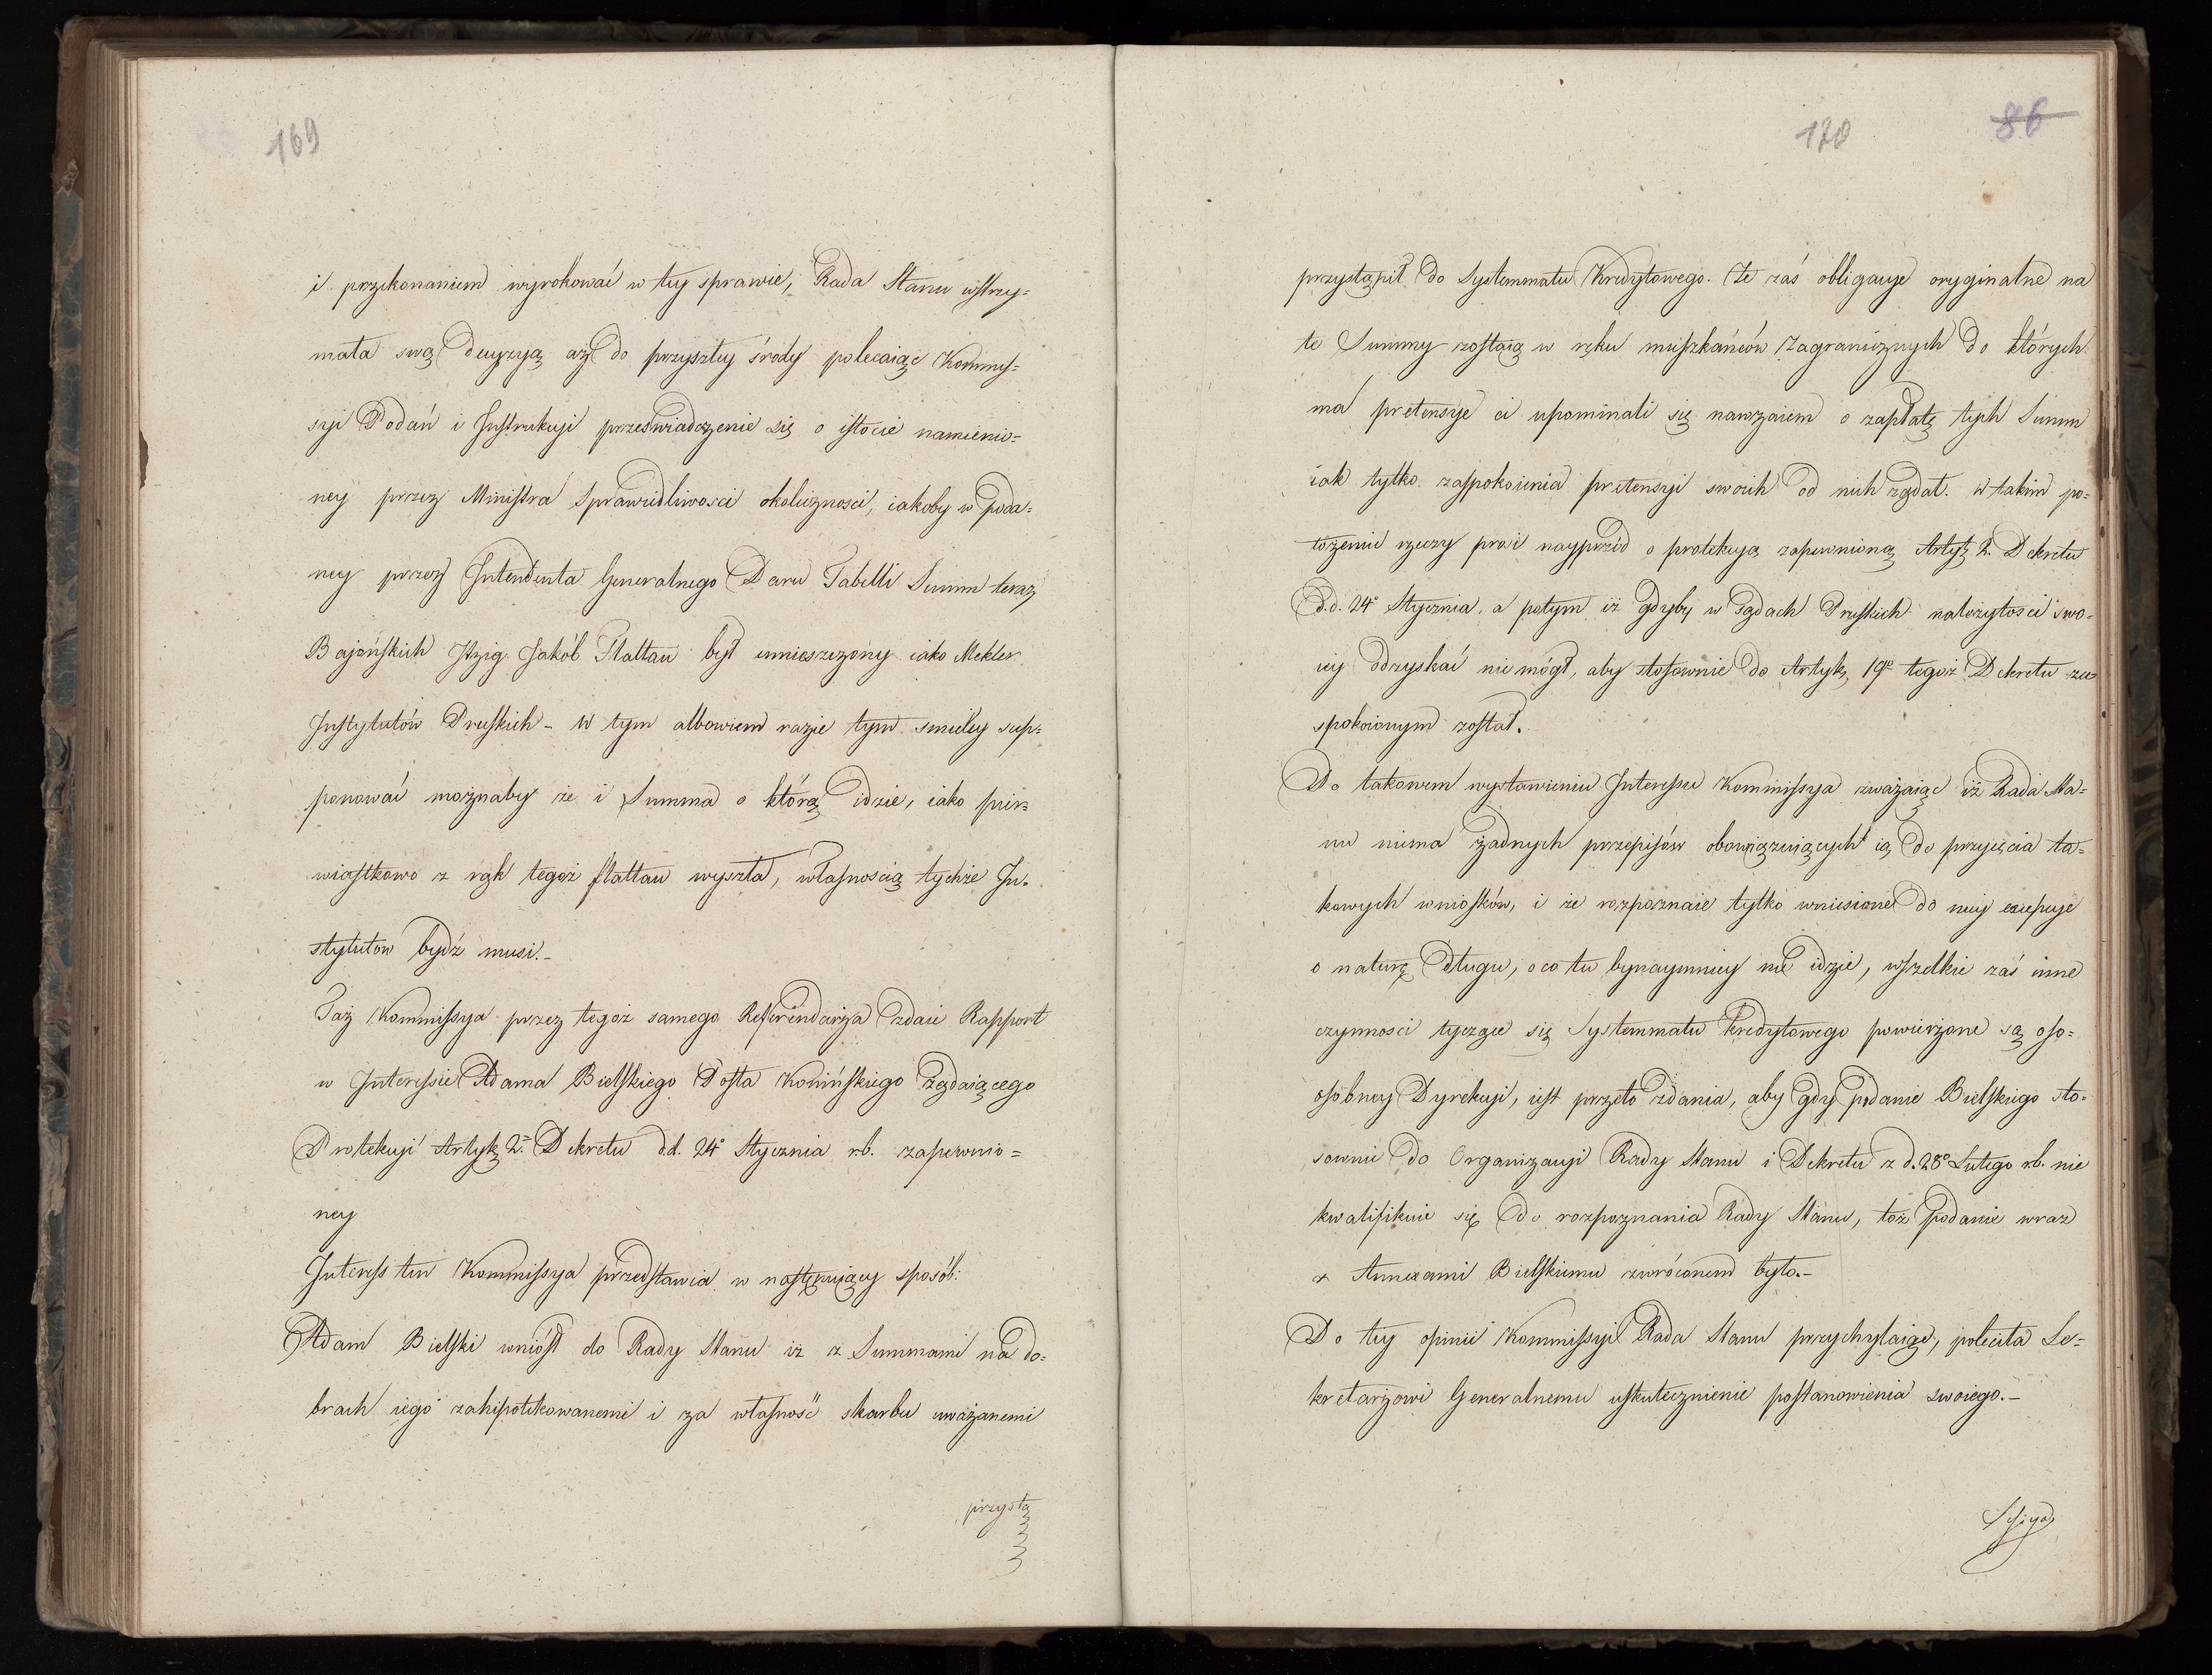 169
i przekonaniem wyrokować w tey sprawie, Rada Stanu wstrzy=
mała swą decyzyą aż do przyszłey środy polecaiąc Kommis=
syi Podań i Instrukcyi przeświadczenie się o istocie namienio=
ney przez Ministra Sprawiedliwosci okolicznosci, iakoby w poda=
ney przez Intendenta Generalnego Daru Tabelli Summ teraz
Bajońskich Itzig Jakób Flattau był umieszczony iako Mekler
Instytutów Pruskich - W tym albowiem razie tym smieley sup=
ponować możnaby że i Summa o którą idzie, iako pier=
wiastkowo z rąk tegoż flattau wyszła, własnością tychże In=
stytutow bydź musi. -
Taż Kommissya przez tegoż samego Referendarza zdaie Rapport
w Interessie Adama Bielskiego Posła Konińskiego żądaiącego
Protekcyi Artyk 2. Dekretu d.d. 24° Stycznia r.b. zapewnio=
ney
Interess ten Kommissya przedstawia w następuiący sposób:
Adam Bielski wniósł do Rady Stanu iż z Summami na do=
brach iego zahipotekowanemi i za własność skarbu uważanemi
przystą
170
86
przystąpił do Systemmatu Kredytowego. Że zaś obligacye oryginalne na
te Summy zostaią w ręku mieszkańców zagranicznych do których
ma pretensye ci upominali się nawzaiem o zapłatę tych Summ
iak tylko zaspokoienia pretensyi swoich od nich żądał. W takim po=
łożeniu rzeczy prosi nayprzód o protekcyą zapewnioną Artyk 2. Dekretu
d.d. 24° Stycznia, a potym iż gdyby w Sądach Pruskich należytości swo=
iey odzyskać nie mógł, aby stosownie do Artyk, 19° tegoż Dekretu zas
spokoionym został.
Po takowem wystawieniu Interessu Kommissya zważaiąc iż Rada Sta=
nu niema żadnych przepisów obowiązuiących ią do przyięcia ta=
kowych wniosków, i że rozpoznaie tylko wniesione do niey excepcye
o naturę długu, o co tu bynaymniey nie idzie, wszelkie zaś inne
czynnosci tyczące się Systemmatu kredytowego powierzone są oso=
osobney Dyrekcyi, iest przeto zdania, aby gdy podanie Bielskiego sto=
sownie do Organizacyi Rady Stanu i Dekretu z d. 28° Lutego r.b. nie
kwalifikuie się do rozpoznania Rady Stanu, toż podanie wraz
z Annexami Bielskiemu zwróconem było. -
Do tey opinii Kommissyi Rada Stanu przychylaiąc, poleciła Se=
kretarzowi Generalnemu uskutecznienie postanowienia swoiego. -